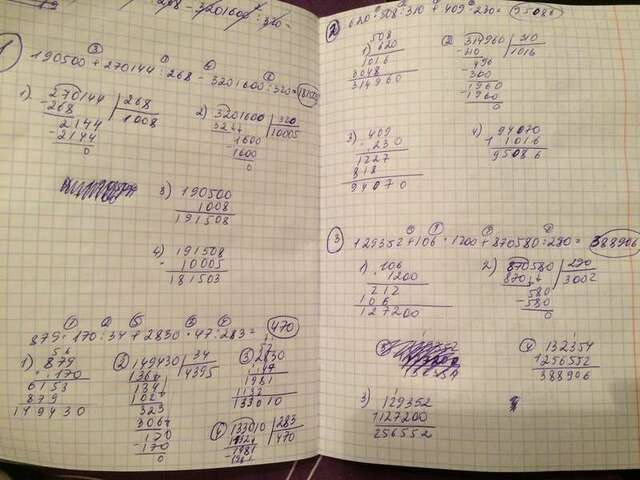 268 - 3201600 : 320 =
1
190500 + 270144 : 268 - 3201600 : 320 =
1) 270144 | 268
- 268 | 1008
2144
- 2144
0
2) 3201600 | 320
| 10005
- 1600
1600
0
3) 190500
1008
191508
4) 191508
- 10005
181503
879 · 170 : 34 + 2830 · 47 : 283 = 470
1) 879
· 170
6153
879
149430
2) 149430 | 34
136 | 4395
134
102
323
306
170
- 170
0
3) 2830
47
1981
1132
133010
4) 133010 | 283
1132 | 470
1981
- 1981
2
620 · 508 : 310 + 409 · 230 = 95086
508
1) 620
1016
3048
314960
2) 314960 | 310
- 310 | 1016
496
- 310
1960
- 1960
0
3) 409
· 230
1227
818
94070
4) 94070
+ 1016
95086
3
129352 + 106 · 1200 + 870580 : 290 = 388906
1) 106
· 1200
212
106
127200
2) 870580 | 290
870 | 3002
580
- 580
0
3) 129352
127200
256552
4) 132354
256552
388906